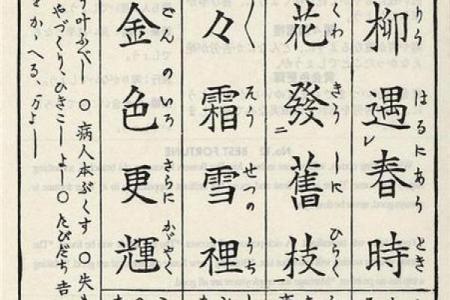 りう はるにあり とき
柳遇レ春時
わ きう しに ひらく
花發二舊枝一
く そう せつの うち
々霜雪裡
ごんのいろ さらに かゞやく
金色更輝
叶ふべし ○病人本ぶくす ○失も
やづくりひきこしよし ○たびだち吉